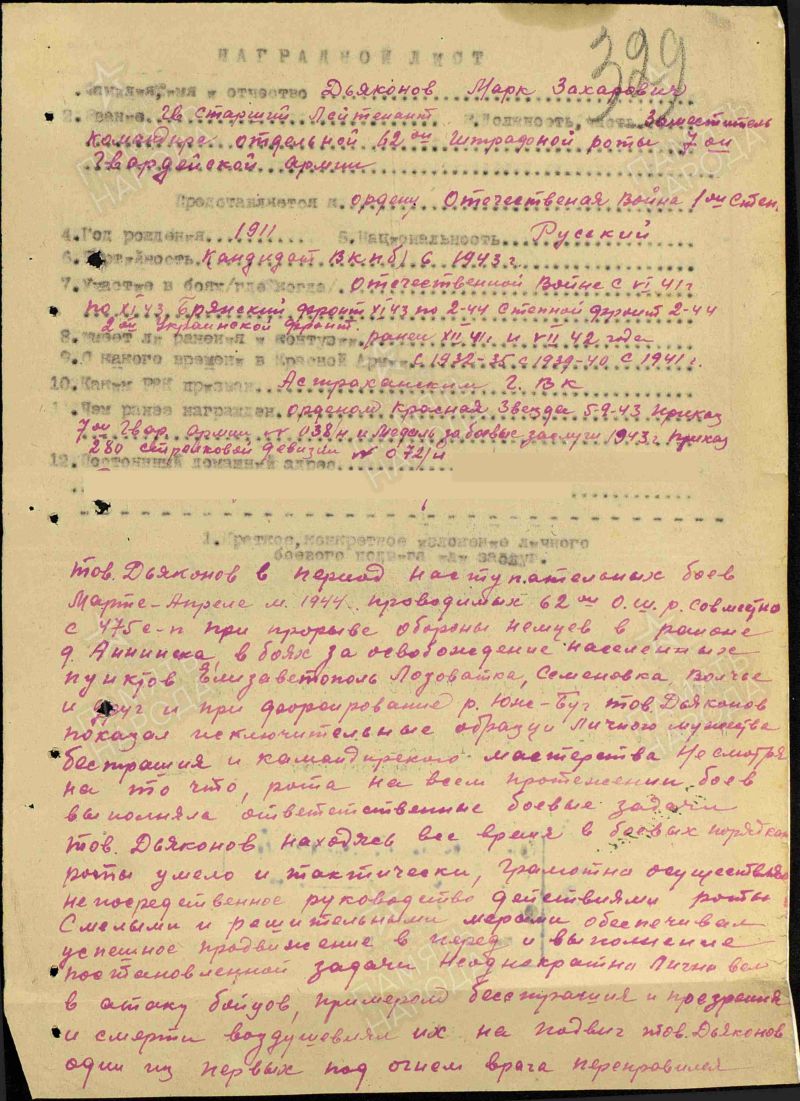 329
НАГРАДНОЙ ЛИСТ
Фамилия, имя и отчество Дьяконов Марк Захарович
2. Звание Гв старший Лейтенант 3. Должность, часть Заместитель
командира отдельной 62 ой Штрафной роты 7 ой
Гвардейской армии
Представляется к ордену Отечественая Война 1 ой степ.
4. Год рождения 1911 5. Национальность Русский
6. Партийность Кандидат ВКП/б/ с 1943 г.
7. Участие в боях/где когда/ Отечественной Войне с VI 41 г
по XI 43 Брянский фронт XI 43 по 2-44 Степной фронт 2-44
2 ой Украинской фронт.
8. Имеет ли ранения и контузии ранен XII 41 г. и VII 42 года
9. С какого времени в Красной Армии с 1932-35 с 1939-40 с 1941 г.
10. Каким РВК призван Астраханским Г. ВК
11. Чем ранее награжден орденом Красная Звезда 5-9-43 приказ
7 ой Гвар. армии № 038/н и Медаль за боевые заслуги 1943 г. приказ
280 стрелковой девизии № 072/н
12. Постоянный домашний адрес
1. Краткое, конкретное изложение личного
боевого подвига или заслуг.
тов. Дьяконов в период наступательных боев
Марте-Апреле м. 1944 проводимых 62 ой О.ш.р. совместно
с 475 с-п при прорыве обороны немцев в районе
д. Аннинска, в боях за освобождение населенных
пунктов Елизаветополь Лозоватка, Семеновка, Волчье
и друг и при форсирование р. Южн-Буг тов. Дьяконов
показал исключительные образци Личного мужества
бестрашия и командирского мастерства Не смотря
на то что, рота на всем протежении боев
выполняла ответственные боевые задачи
тов. Дьяконов находясь все время в боевых порядках
роты умело и тактически, грамотно осуществлял
непосредственное руководство действиями роты
Смелыми и решительными мерами обеспечивал
успешное продвижение в перед и выполнение
постановленной задачи Неоднократна Лично вел
в атаку бойцов, примером бесстрашия и презрения
и смерти воздушевлял их на подвиг тов. Дьяконов
один из первых под огнем врага переправился